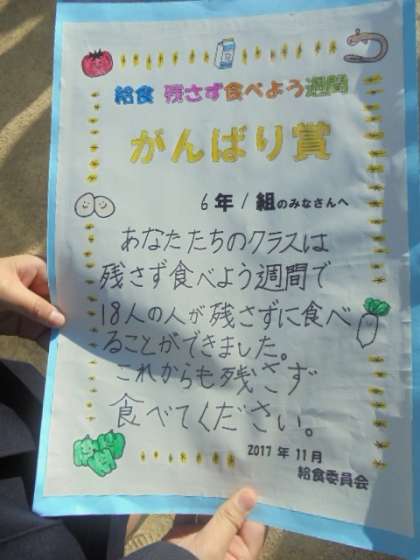 給食 残さず食べよう週間
がんばり賞
6年1組のみなさんへ
あなたたちのクラスは
残さず食べよう週間で
18人の人が残さずに食べ
ることができました。
これからも残さず
食べてください。
2017年11月
給食委員会